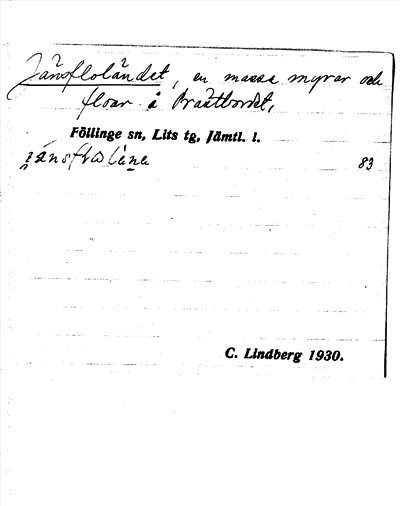 Jänsfloländet, en massa myrar och
floar å Prästbordet,
Föllinge sn, Lits tg, Jämtl. l.
83
C. Lindberg 1930.